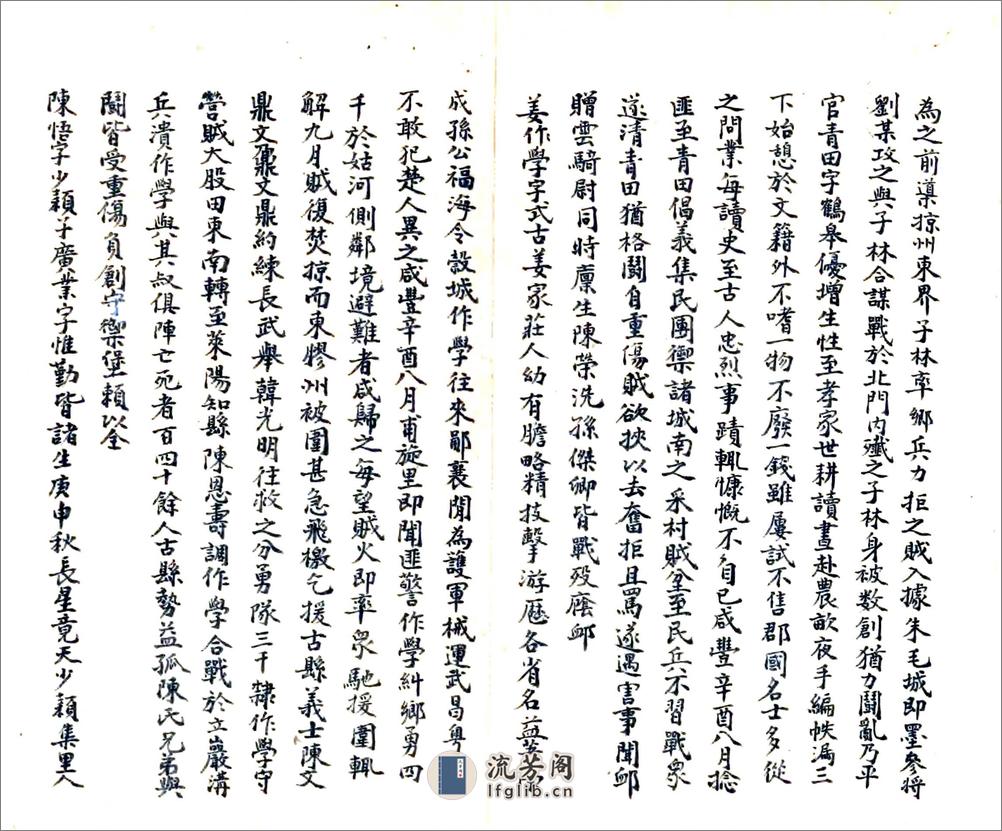 為之前導掠州東界子林率鄉兵力拒之賊入據朱毛城即墨參將
劉某攻之與子林合謀戰於北門內殲之子林身被数創猶力鬪亂乃平
官青田字鶴皋優增生性至孝家世耕讀晝赴農畝夜手編帙漏三
下始憩於文籍外不嗜一物不廢一錢雖屢試不售郡國名士多從
之問業每讀史至古人忠烈事蹟輒慷慨不自已咸豐辛酉八月捻
匪至青田倡義集民團禦諸城南之采村賊坌至民兵不習戰衆
遂清青田猶格鬪自重傷賊欲挾以去奮拒且罵遂遇害事聞卹
贈雲騎尉同時廩生陳榮洗孫傑卿皆戰歿廕卹
姜作學字式古姜家莊人幼有膽略精技擊游歷各省名益
成孫公福海令穀城作學往來鄖襄間為護軍械運武昌粵
不敢犯楚人異之咸豐辛酉八月甫旋里即聞匪警作學糾鄉勇四
千於姑河側鄰境避難者咸歸之每望賊火即率衆馳援圍輒
解九月賊復焚掠而東膠州被圍甚急飛檄乞援古縣義士陳文
鼎文鼐文鼎約練長武舉韓光明往救之分勇隊三千隸作學守
營賊大股田東南轉至萊陽知縣陳恩壽調作學合戰於立巖溝
兵潰作學與其叔俱陣亡死者百四十餘人古縣勢益孤陳氏兄弟與
鬪皆受重傷負創守禦堡賴以全
陳悟字少穎子廣業字惟勤皆諸生庚申秋長星竟天少穎集里人
流芳阁
lfglib.cn